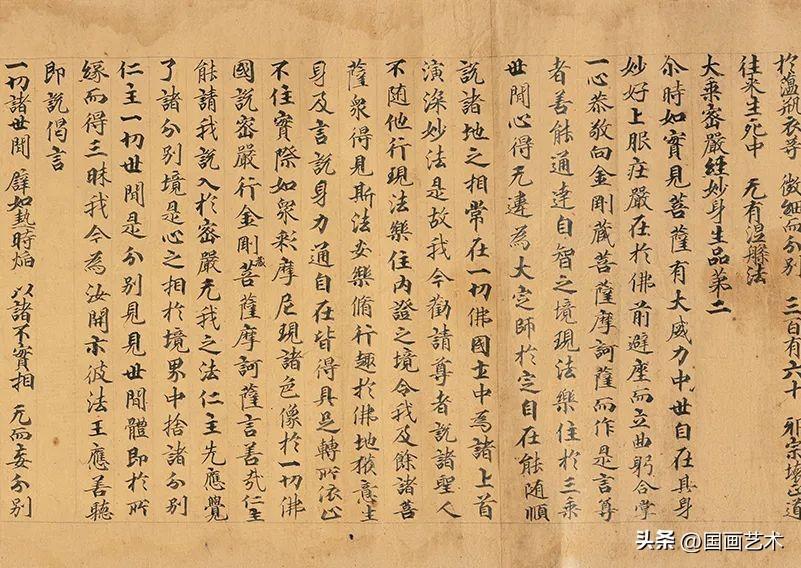 於蘊 衣等 微細而分別 三百有六十 邪宗壞正道
往來生死中 无有涅槃法
大乘密嚴經妙身生品第二
尒時如實見菩薩有大威力中世自在具身
妙好上服庄嚴在於佛前避座而立曲躬合掌
一心恭敬向金剛藏菩薩摩訶薩而作是言尊
者善能通達自智之境現法樂住於三乘
世間心得无邊為大定師於定自在能随順
說諸地之相常在一切佛國土中為諸上首
演深妙法是故我今勸請尊者說諸聖人
不随他行現法樂住內證之境令我及餘諸菩
薩衆得見斯法安樂脩行趣於佛地獲意生
身及言說身力通自在皆得具足轉所依止
不住實際如衆彩摩尼現諸色像於一切佛
國說密嚴行金剛藏菩薩摩訶薩言善哉仁主
能請我說入於密嚴无我之法仁主先應覺
了諸分別境是心之相於境界中捨諸分別
仁主一切世間是分別見見世間體即於所
緣而得三昧我今為汝開示彼法王應善聽
即說偈言
一切諸世間 譬如熱時焰 以諸不實相 无而妄分別
头条 @国画艺术